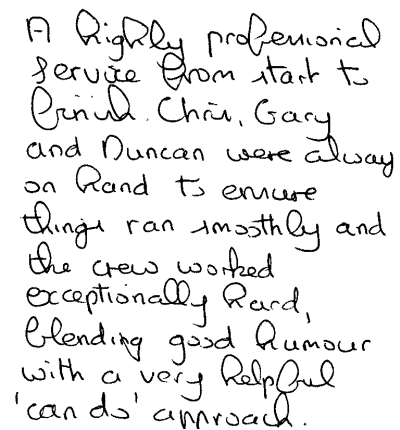 A highly professional
service from start to
finish. Chris, Gary
and Duncan were always
on hand to ensure
things ran smoothly and
the crew worked
exceptionally hard,
blending good humour
with a very helpful
'can do' approach.